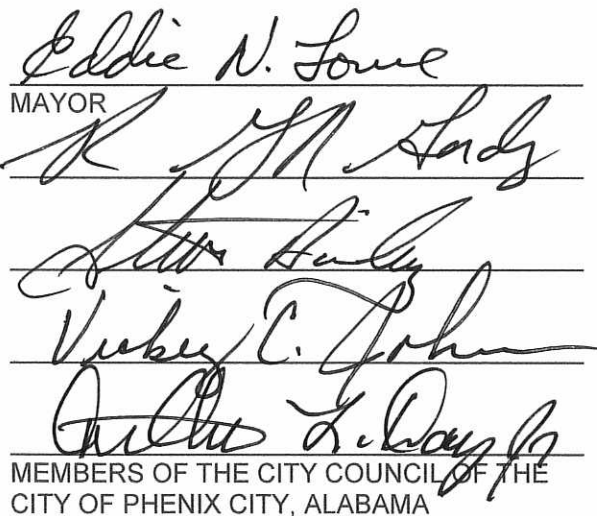 Eddie N. Lowe
MAYOR
R
Steve Bailey
Vickey C. Johnson
Arthur L. Day Jr
MEMBERS OF THE CITY COUNCIL OF THE
CITY OF PHENIX CITY, ALABAMA